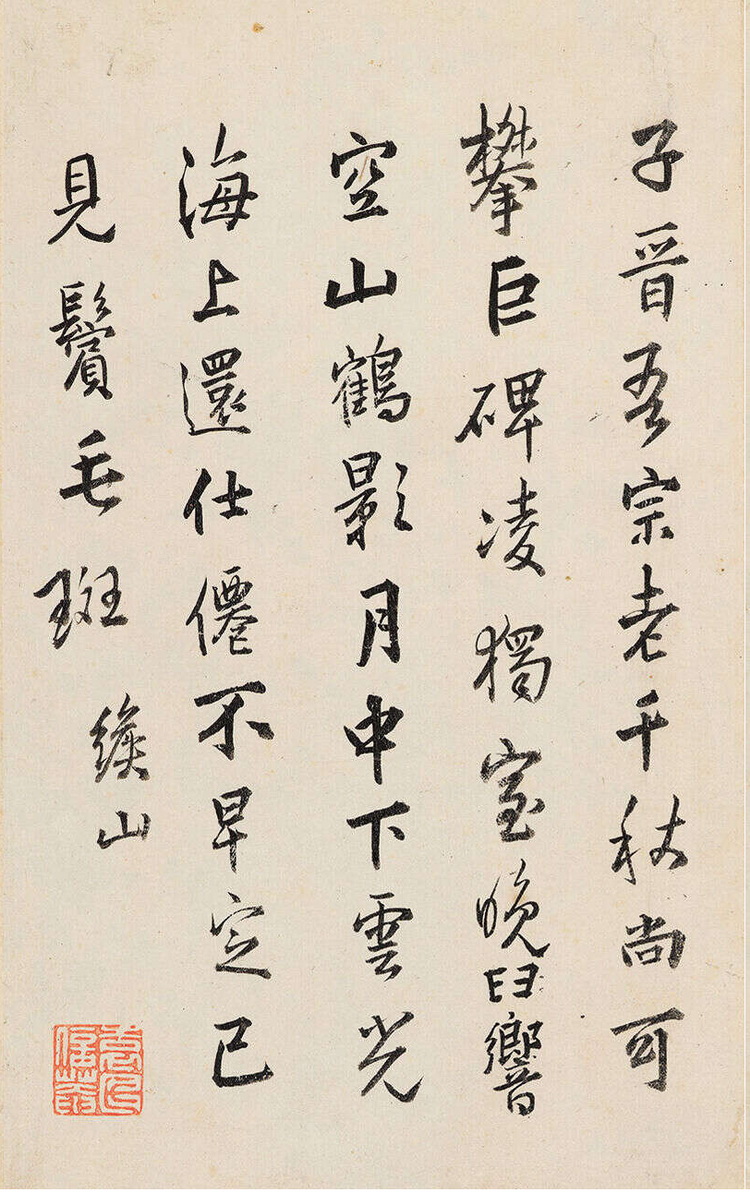 子晉吾宗老千秋尚可
攀巨碑凌獨室晚臼響
空山鶴影月中下雲光
海上還仕僊不早定已
見鬢毛斑
緱山